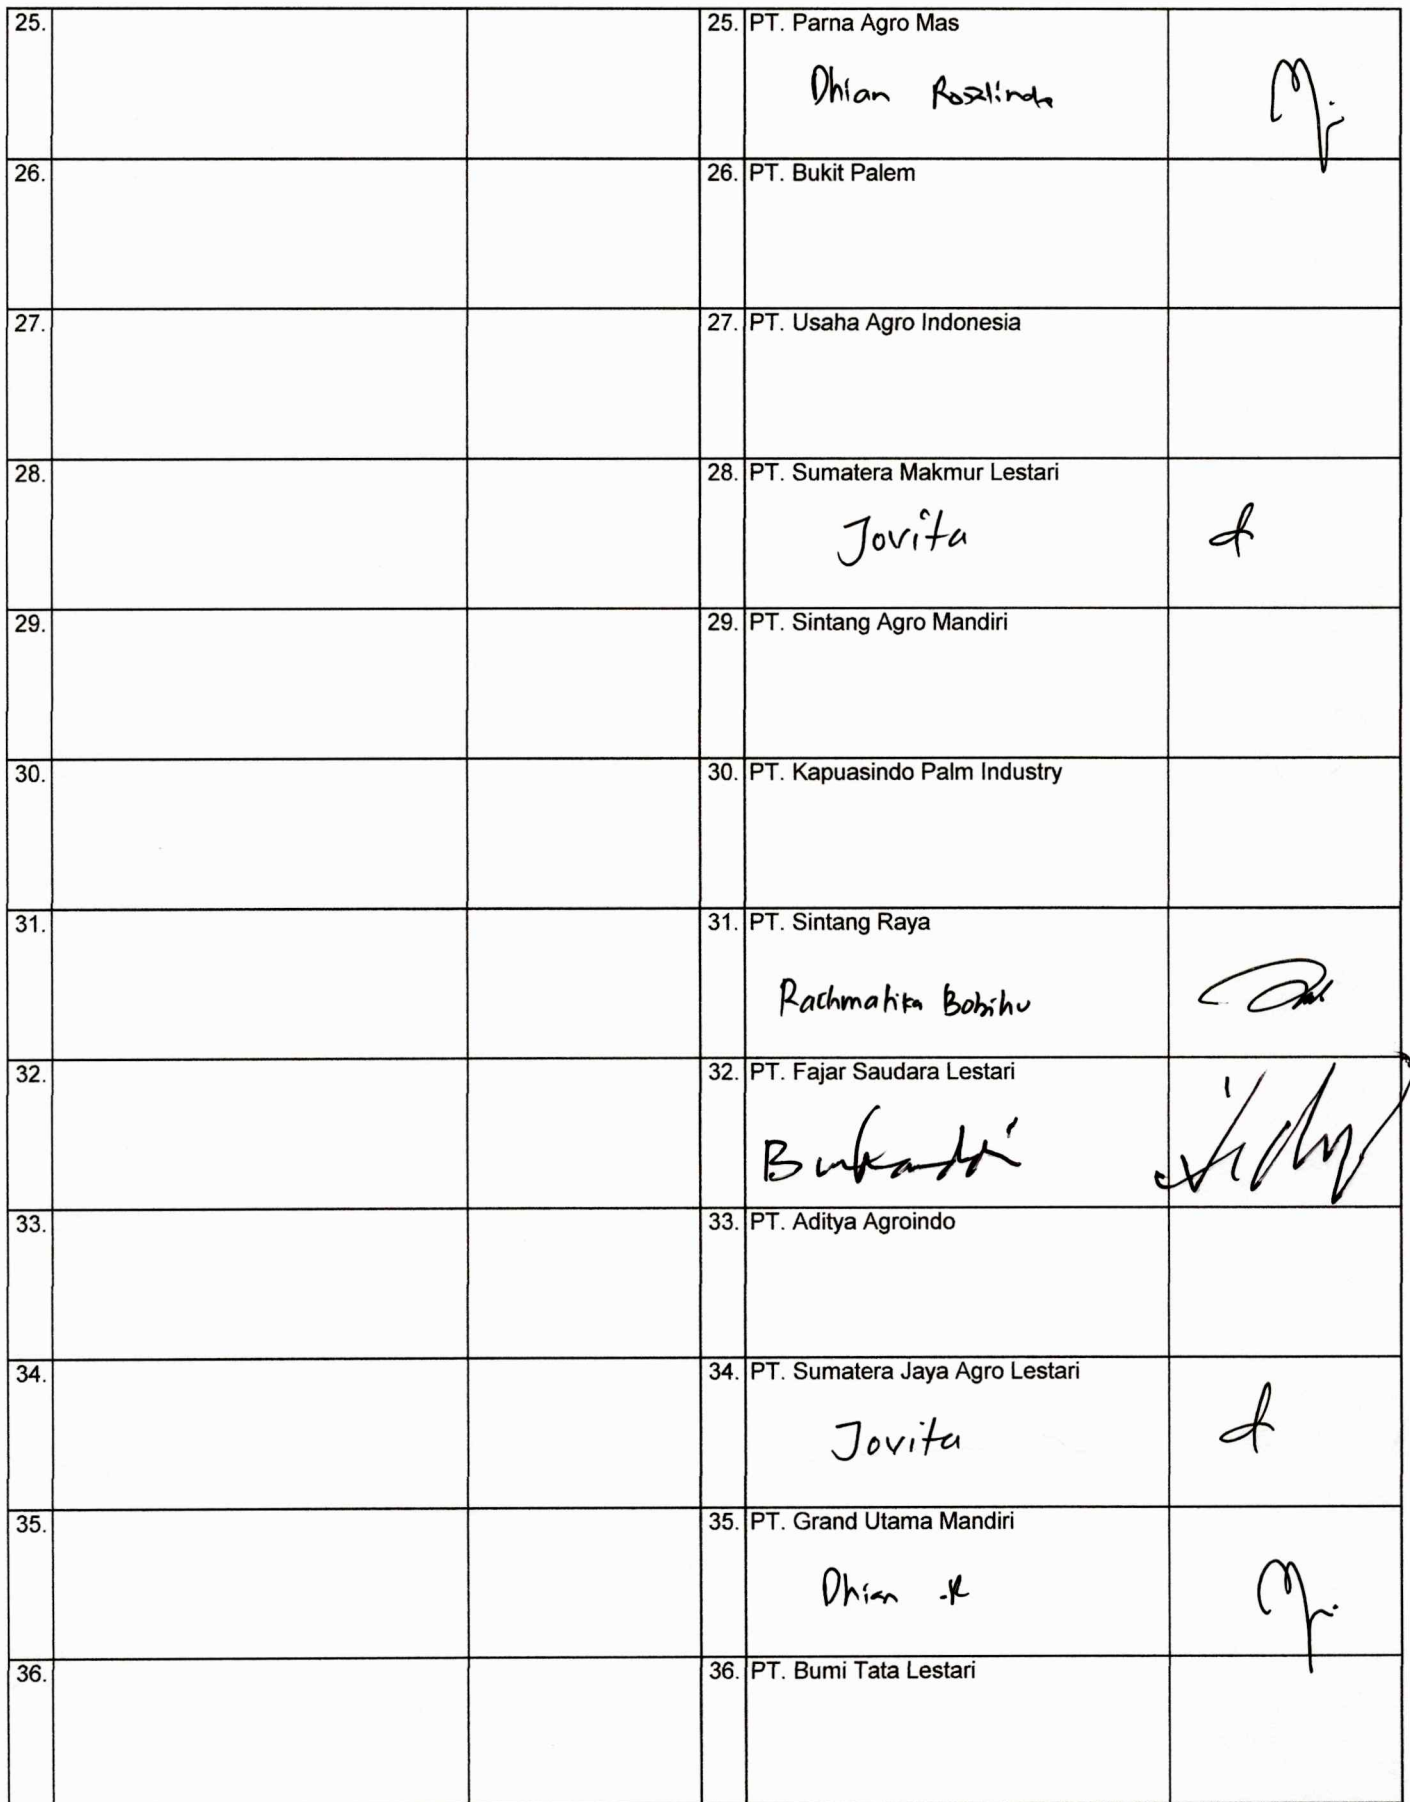 25.
25. PT. Parna Agro Mas
Dhian Rosalinda
26.
26. PT. Bukit Palem
27.
27. PT. Usaha Agro Indonesia
28.
28. PT. Sumatera Makmur Lestari
Jovita
29.
29. PT. Sintang Agro Mandiri
30.
30. PT. Kapuasindo Palm Industry
31.
31. PT. Sintang Raya
Rachmatika Bobihu
32.
32. PT. Fajar Saudara Lestari
33.
33. PT. Aditya Agroindo
34.
34. PT. Sumatera Jaya Agro Lestari
Jovita
35.
35. PT. Grand Utama Mandiri
Dhian .R
36.
36. PT. Bumi Tata Lestari